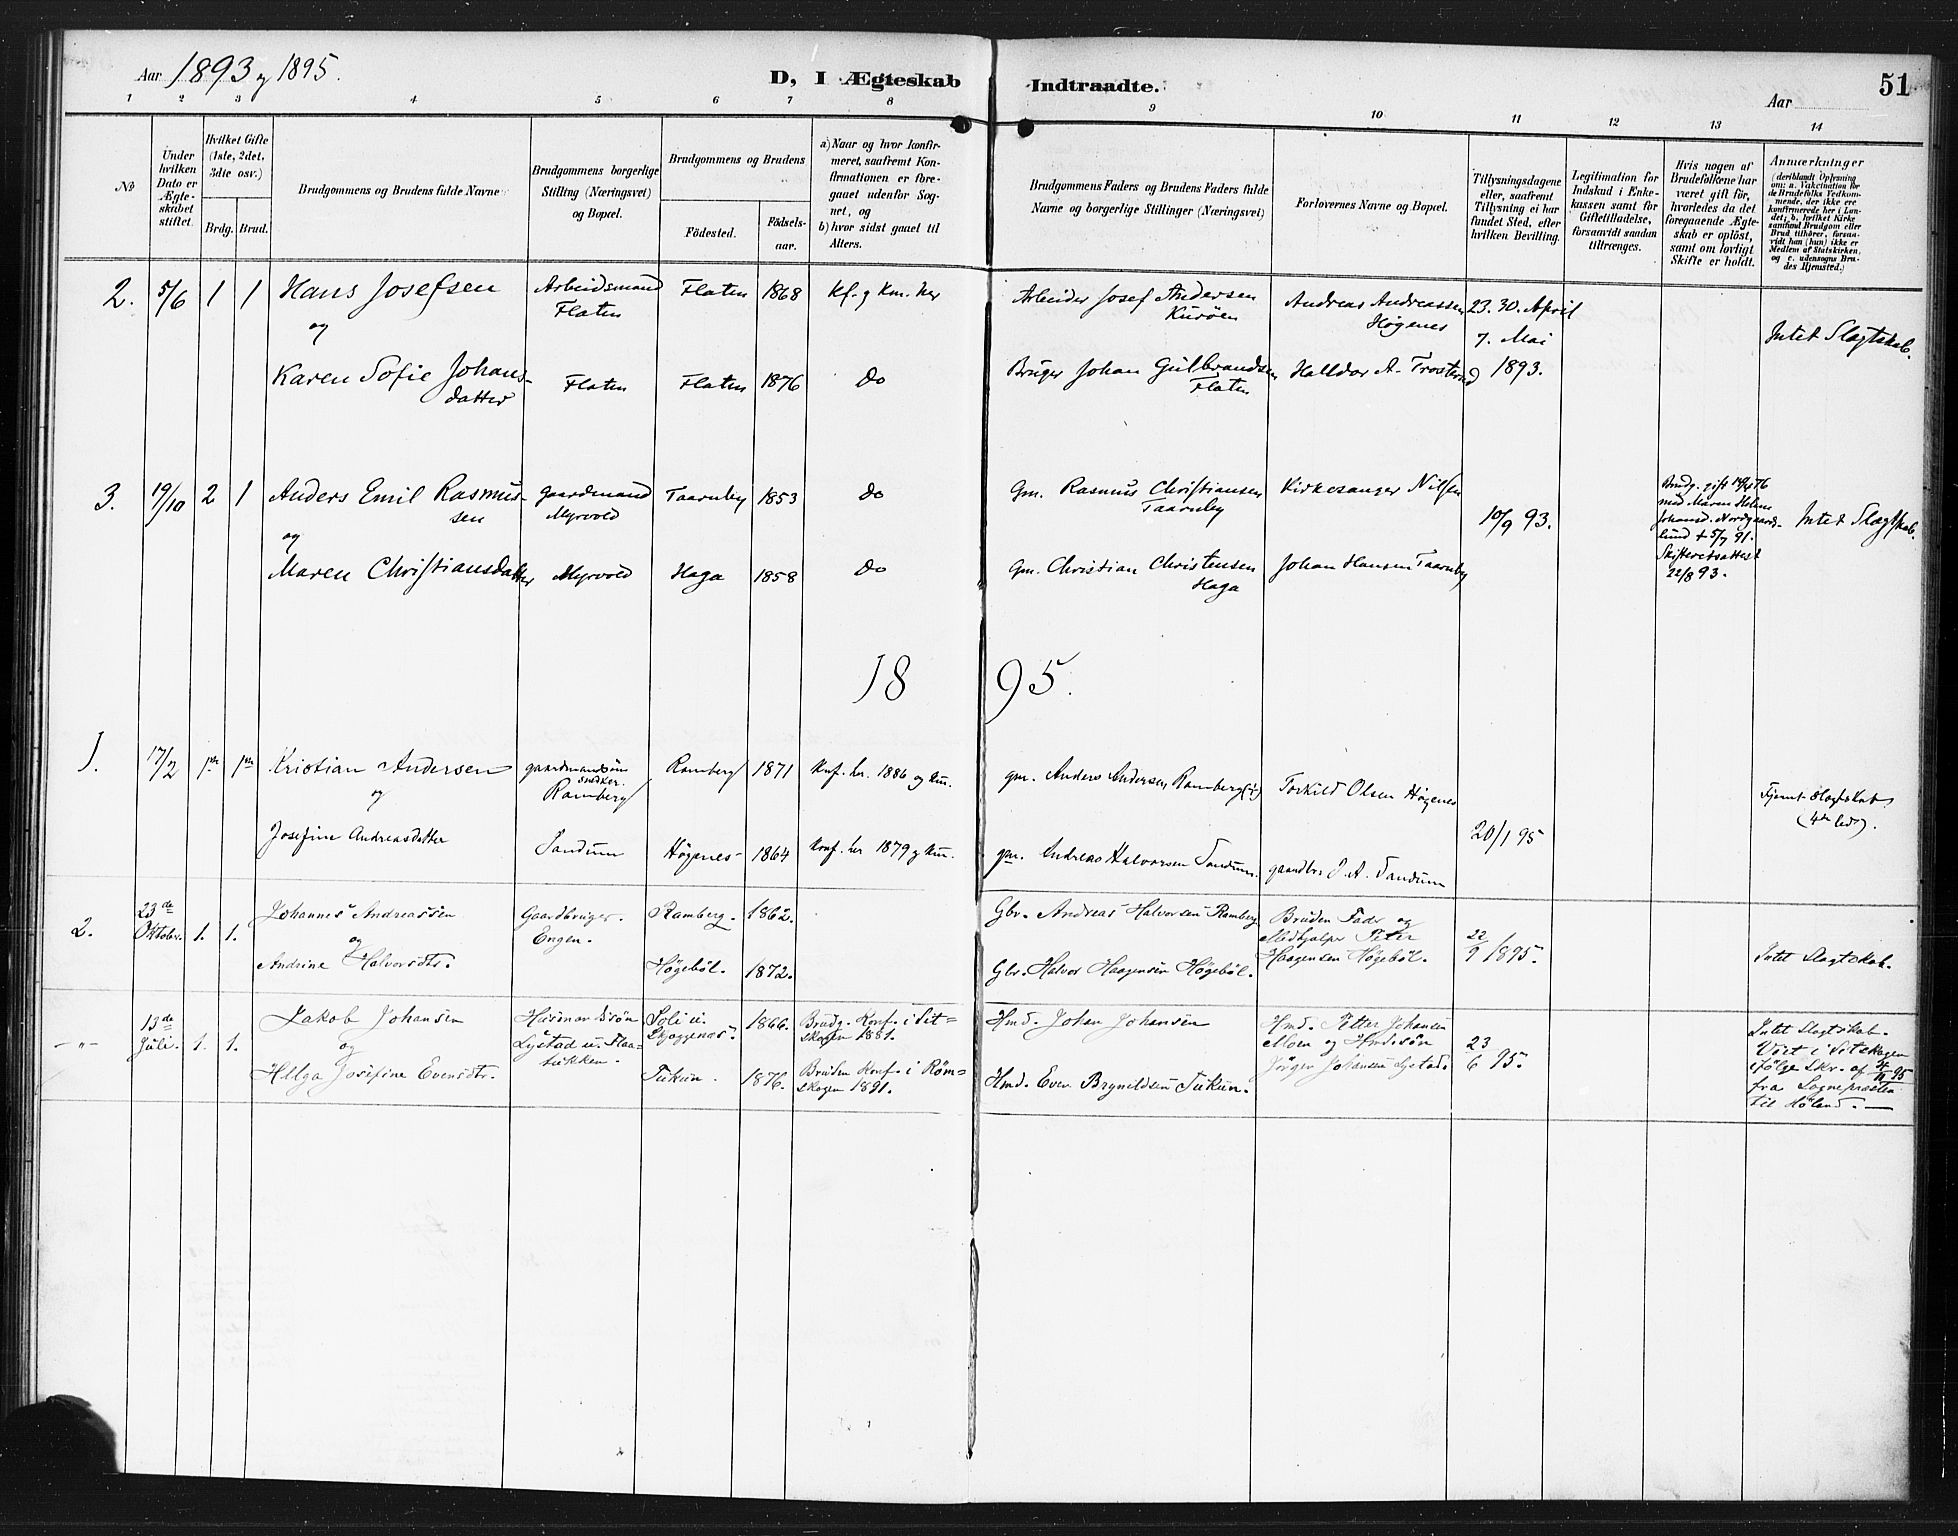 Aar 1893 og 1895.
D, I Ægteskab Indtraadte.
51
Aar
1 2 3 4 5 6 7 8 9 10 11 12 13 14
No
Under hvilken Dato er Ægteskabet stiftet.
Hvilket Gifte (1ste, 2det, 3dte osv.)
Brdg. Brud.
Brudgommens og Brudens fulde Navne
Brudgommens borgerlige Stilling (Næringsvei) og Bopæl.
Brudgommens og Brudens
Fødested.
Fødselsaar.
a) Naar og hvor konfirmeret, saafremt Konfirmationen er foregaaet udenfor Sognet, og
b) hvor sidst gaaet til Alters.
Brudgommens Faders og Brudens Faders fulde Navne og borgerlige Stillinger (Næringsvei)
Forlovernes Navne og Bopæl.
Tillysningsdagene eller, saafremt Tillysning ei har fundet Sted, efter hvilken Bevilling.
Legitimation for Indskud i Enkekassen samt for Giftetilladelse, forsaavidt saadan tiltrænges.
Hvis nogen af Brudefolkene har været gift før, hvorledes da det foregaaende Ægteskab er opløst, samt om lovligt Skifte er holdt.
Anmærkninger
(deriblandt Oplysning om: a. Vakcination for de Brudefolks Vedkommende, der ikke ere konfirmerede her i Landet; b. hvilket Kirkesamfund Brudgom eller Brud tilhører, forsaavidt han (hun) ikke er Medlem af Statskirken, og c. udensogns Brudes Hjemsted.)
2. 5/6 1 1 Hans Josefsen
og
Arbeidsmand
Flaten
Flaten 1868 Kf. og Km. her
Arbeider Josef Andersen
Kurøen
Andreas Andreassen
Høgenes
23. 30. April
7. Mai
1893.
Intet Slægtskab.
Karen Sofie Johans-
datter
Flaten Flaten 1876 Do
Bruger Johan Gulbrandsen
Flaten
Halldor A. Trosterud
3. 19/10 2 1 Anders Emil Rasmus-
sen
og
Gaardmand
Myrvold
Taarnby 1853 Do
Gm. Rasmus Christiansen
Taarnby
Kirkesanger Nilsen
10/9 93.
Brudg. gift
med Maren Helene
Johansd. Nordgaards-
lund + 5/7 91.
Skifteretsattest
22/8 93.
Intet Slægtskab.
Maren Christiansdatter Myrvold Haga 1858 Do
Gm. Christian Christensen
Haga
Johan Hansen Taarnby
1895.
1. 17/2 1ste 1ste Kristian Andersen
og
gaardmandssøn
snedker.
Ramberg
Ramberg 1871 Konf. her 1886 og Km.
gm. Anders Andersen Ramberg (+)
Torkild Olsen Høgenes
20/1 95
Fjernt Slægtskab
(4de led).
Josefine Andreasdatter Tandum Høgenes 1864 Konf. her 1879 og Km.
gm. Andreas Halvorsen Tandum.
gaardbr. J. A. Tandum
2. 23de
Oktober. 1. 1. Johannes Andreassen
og
Gaardbruger.
Engen.
Ramberg. 1862.
Gbr. Andreas Halvorsen Ramberg
Bruden Fader og
Medhjælper Peter
Haagensen Høgebøl.
22/9 1895.
Intet Slægtskab.
Andrine Halvorsdtr. Høgebøl. 1872.
Gbr. Halvor Haagensen Høgebøl.
— " — 13de
Juli. 1. 1. Jakob Johansen
og
Husmandssøn
Lystad u. Flaa-
tukken.
Soli u.
Skjøggenæs. 1866.
Brudg. Konf. i Set-
skogen 1881.
Hmd. Johan Johansen
Hmd. Petter Johansen
Moen og Hmdssøn
Jørgen Johansen Lystad.
23/6 95.
Intet Slægtskab.
Viet i Setskogen
ifølge Skr. af
fra Sognepræsten
til Høland. —
Helga Josefine Evensdtr. Tukun. 1876.
Bruden Konf. i Røm-
skogen 1891.
Hmd. Even Brynildsen Tukun.